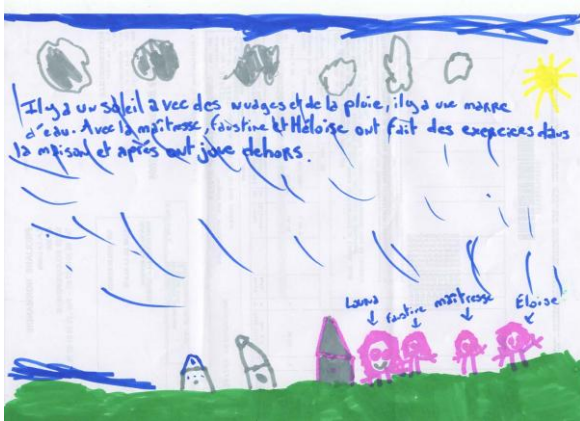 Il y a un soleil avec des nuages et de la pluie, il y a une marre
d'eau. Avec la maîtresse, faustine et Héloïse ont fait des exercices dans
la maison et après ont joué dehors.
Louna
faustine
maîtresse
Eloïse